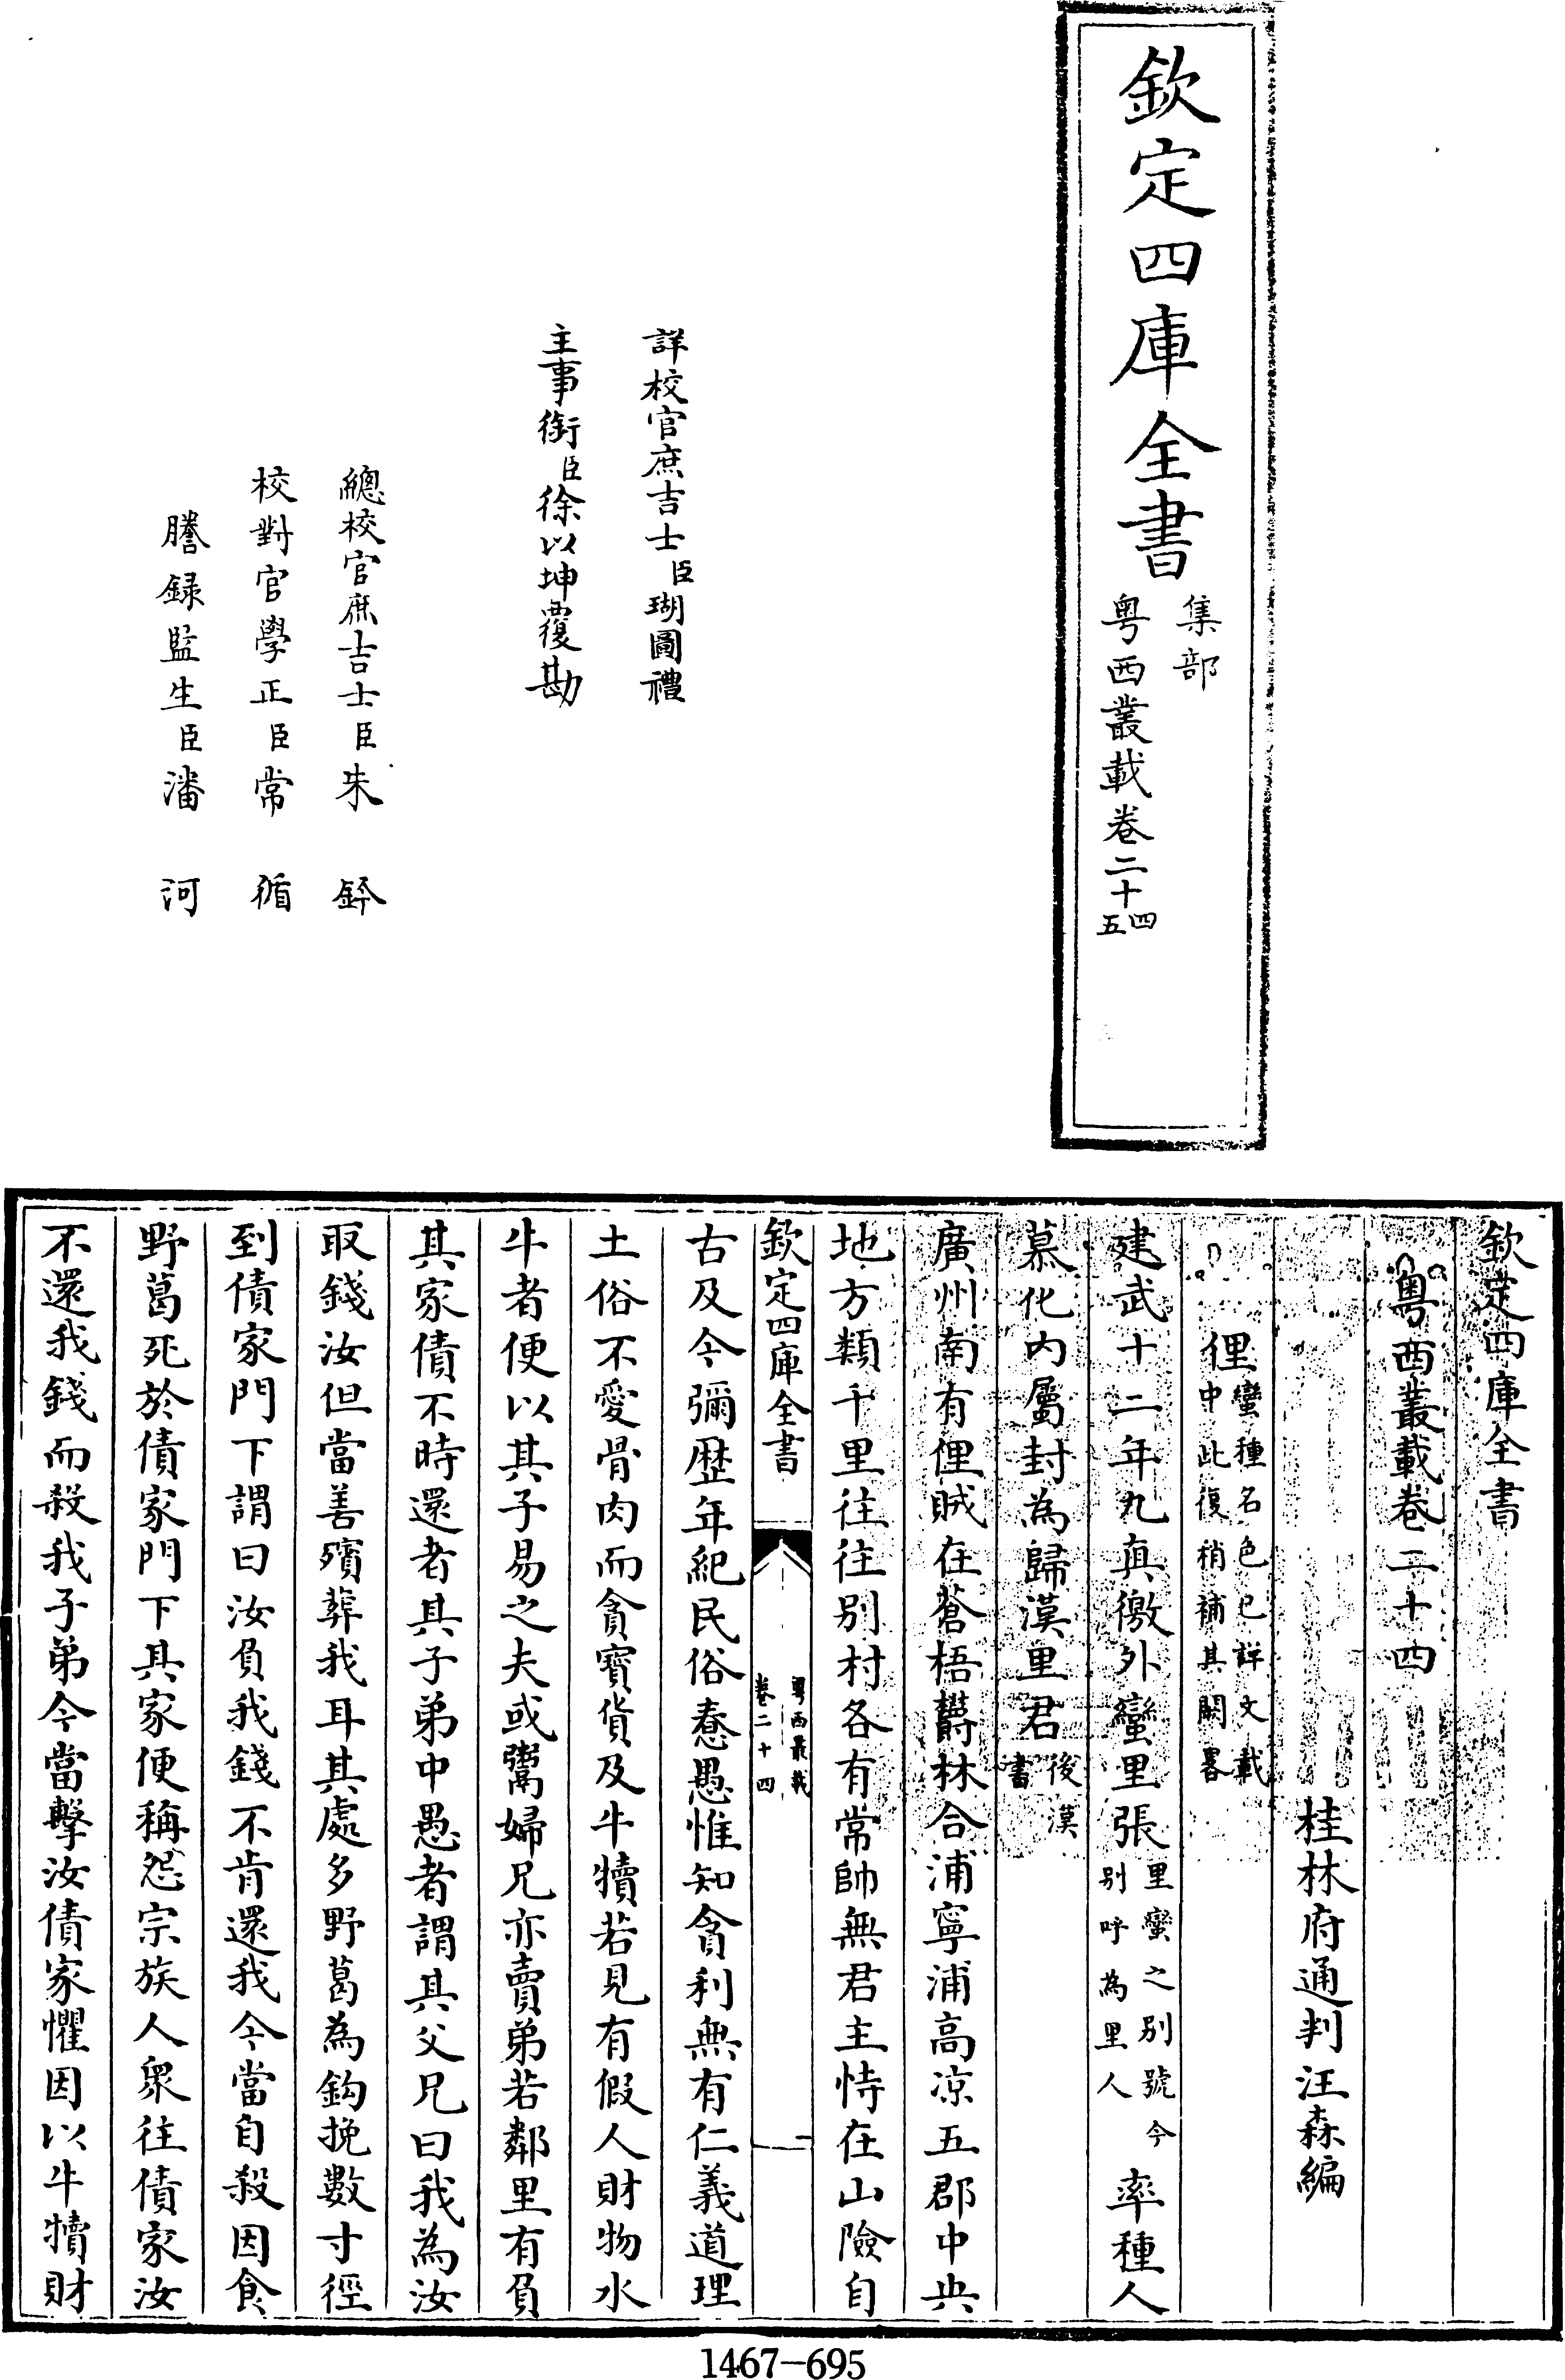 欽定四庫全書
集部
粤西叢載卷二十四五
詳校官庶吉士臣瑚圖禮
主事銜臣徐以坤覆勘
總校官庶吉士臣朱鈐
校對官學正臣常循
謄録監生臣潘河
欽定四庫全書
粤西叢載卷二十四
桂林府通判汪森編
俚蠻種名色已詳文載中此復稍補其闕畧
建武十二年九真徼外蠻里張里蠻之别號今别呼為里人率種人
慕化内屬封為歸漢里君後漢書
廣州南有俚賊在蒼梧欝林合浦寧浦高凉五郡中央
地方類千里往往别村各有常帥無君主恃在山險自
欽定四庫全書
粤西叢載
卷二十四
一
古及今彌歴年紀民俗惷愚惟知貪利無有仁義道理
土俗不愛骨肉而貪寳貨及牛犢若見有假人財物水
牛者便以其子易之夫或鬻婦兄亦賣弟若鄰里有負
其家債不時還者其子弟中愚者謂其父兄曰我為汝
取錢汝但當善殯葬我耳其處多野葛為鈎挽數寸徑
到債家門下謂曰汝負我錢不肯還我今當自殺因食
野葛死於債家門下其家便稱怨宗族人衆往債家汝
不還我錢而殺我子弟今當擊汝債家懼因以牛犢財
1467-695